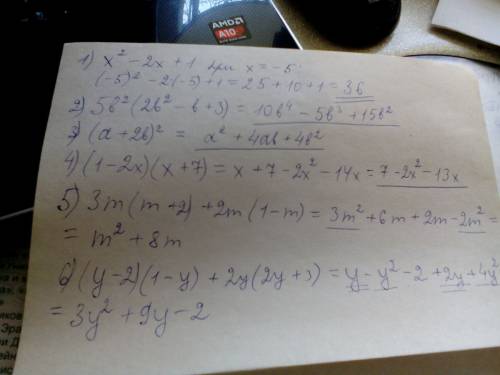 AMD
A10
1) x² - 2x + 1 при x = -5:
(-5)² - 2(-5) + 1 = 25 + 10 + 1 = 36
2) 5b²(2b² - b + 3) = 10b⁴ - 5b³ + 15b²
3) (a + 2b)² = a² + 4ab + 4b²
4) (1 - 2x)(x + 7) = x + 7 - 2x² - 14x = 7 - 2x² - 13x
5) 3m(m + 2) + 2m(1 - m) = 3m² + 6m + 2m - 2m² =
= m² + 8m
6) (y - 2)(1 - y) + 2y(2y + 3) = y - y² - 2 + 2y + 4y²
= 3y² + 9y - 2